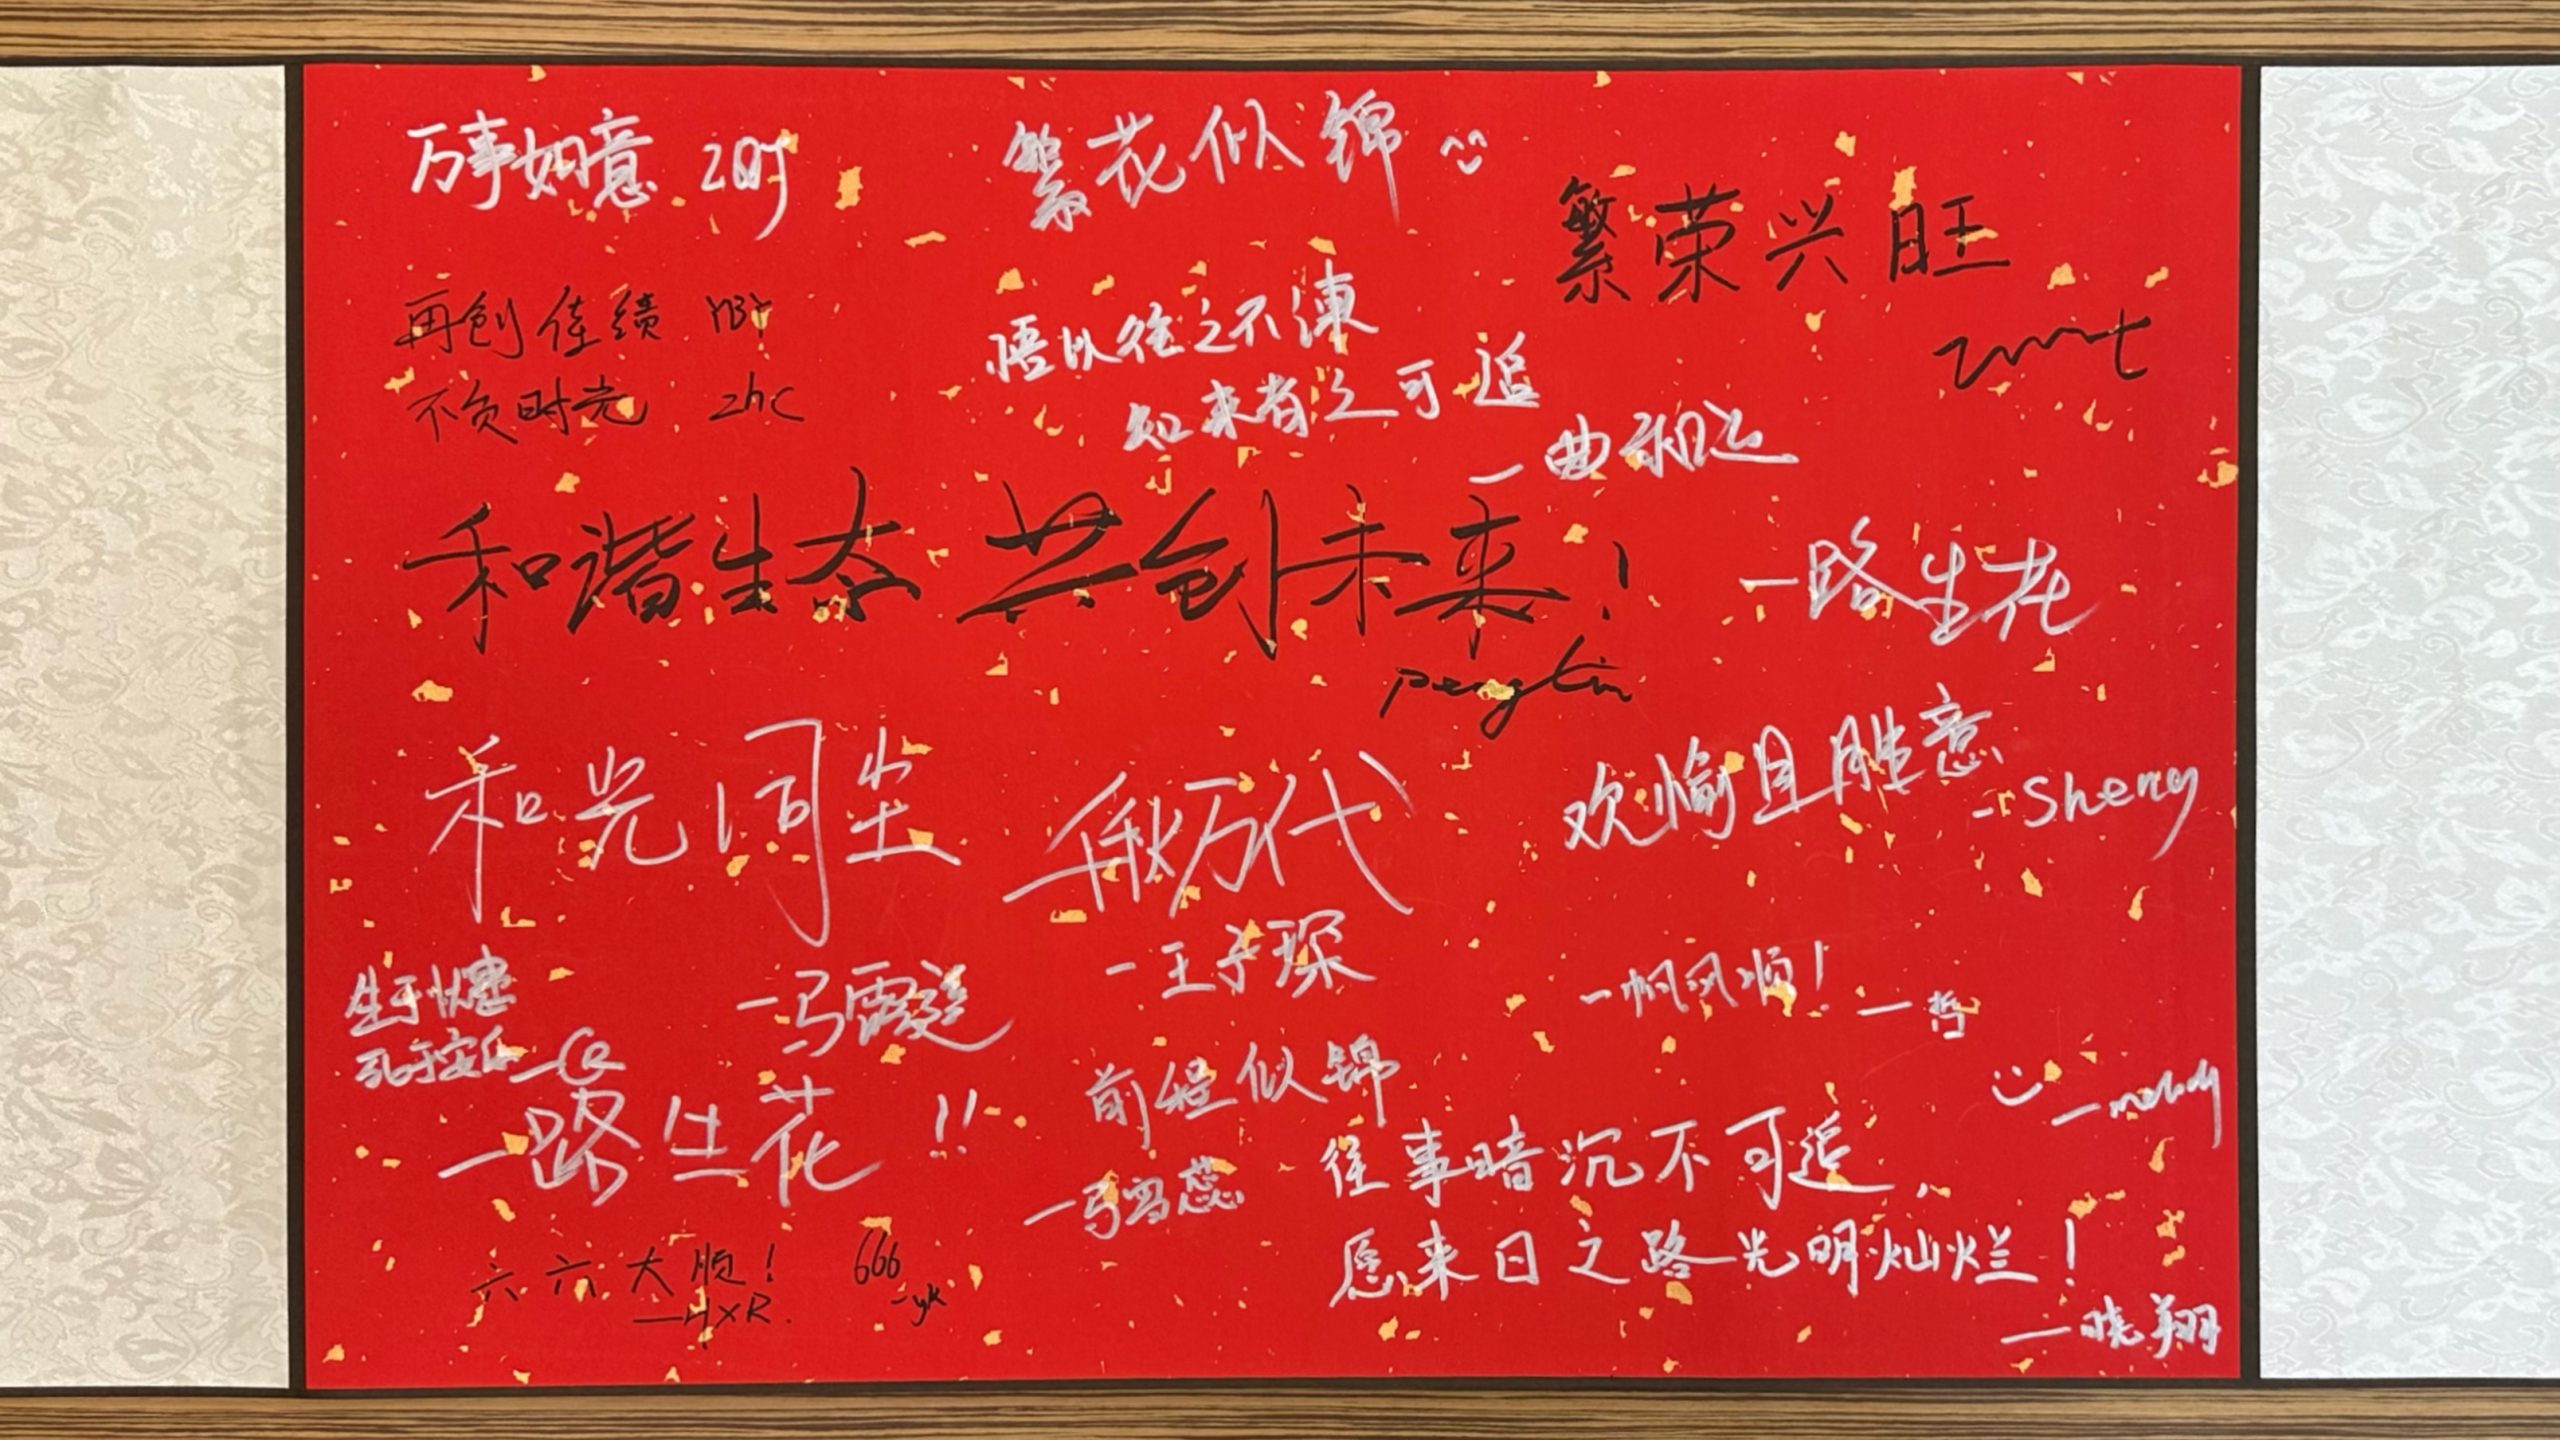 万事如意 zqy
繁花似锦
繁荣兴旺
再创佳绩 YBY
不负时光 zhc
悟以往之不谏
知来者之可追
和谐生态 共创未来！
penglin
一路生花
和光同尘
千秋万代
—王子琛
欢愉且胜意
-Sheng
生于忧患
死于安乐
—马霞
一帆风顺！
—哲
一路生花!!
前程似锦
—马雪蕊
—melody
往事暗沉不可追，
愿来日之路光明灿烂！
—晓翔
六六大顺！
—HXR.
666
-yk